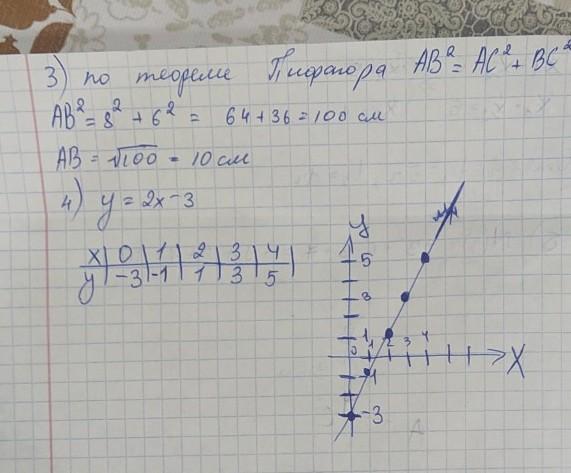 3) по теореме Пифагора AB² = AC² + BC²
AB² = 8² + 6² = 64 + 36 = 100 см
AB = √100 = 10 см
4) y = 2x - 3
x | 0 | 1 | 2 | 3 | 4 |
y | -3 | -1 | 1 | 3 | 5 |
y
5
3
1
0 1 2 3 4
X
-1
-3